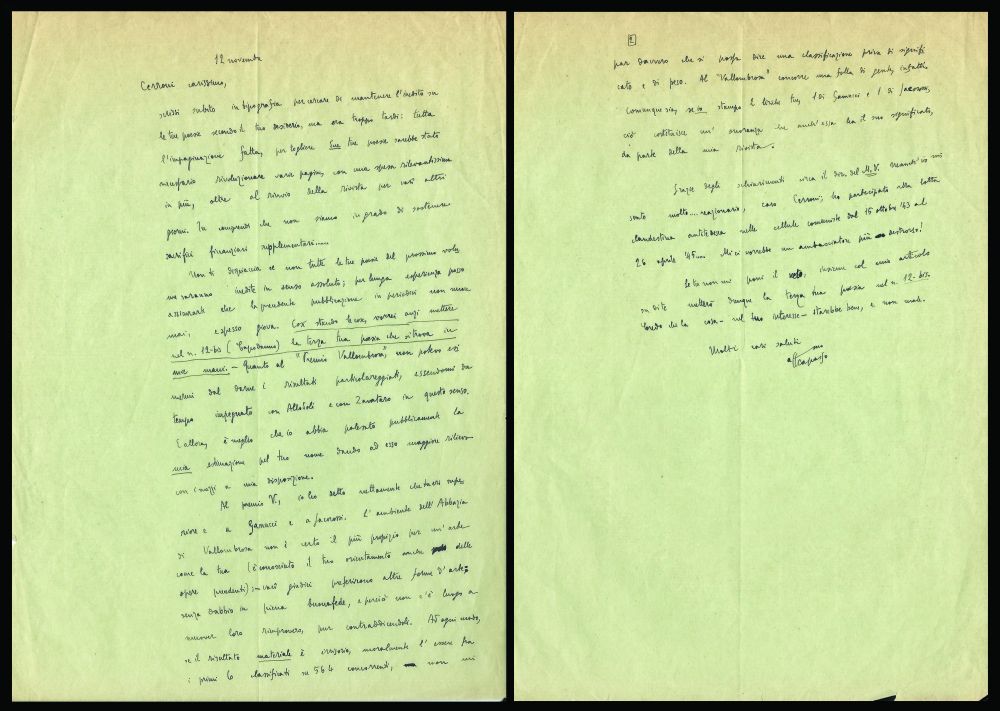 12 novembre
Cerroni carissimo,
scrissi subito in tipografia per cercare di mantenere l'inedito su
le tue poesie secondo il tuo desiderio, ma era troppo tardi: tutta
l'impaginazione fatta, per togliere due tue poesie sarebbe stato
necessario rivoluzionare varie pagine, con una spesa rilevantissima
in più, oltre al rinvio della rivista per vari altri
giorni. Tu comprendi che non siamo in grado di sostenere
sacrifici finanziari supplementari.....
Non ti dispiaccia se non tutte le tue poesie del prossimo volu
me saranno inedite in senso assoluto; per lunga esperienza posso
assicurarti che la precedente pubblicazione in periodici non nuoce
mai, e spesso giova. Così stando le cose, vorrei anzi mettere
nel n. 12-bis (Capodanno) la terza tua poesia che si trova in
mie mani. - Quanto al "Premio Vallombrosa" non potevo esi
mermi dal darne i risultati particolareggiati, essendomi da
tempo impegnato con Allodoli e con Zavataro in questo senso.
E allora, è meglio che io abbia palesato pubblicamente la
mia estimazione pel tuo nome dando ad esso maggiore rilievo
con i mezzi a mia disposizione.
Al premio V., io ho detto nettamente che tu eri supe
riore e a Zanucci e a Jacorossi. L'ambiente dell'Abbazia
di Vallombrosa non è certo il più propizio per un'arte
come la tua (è conosciuto il tuo orientamento anche delle
opere precedenti); - vari giudici preferirono altre forme d'arte,
senza dubbio in piena buonafede, e perciò non c'è luogo a
muover loro rimprovero, pur contraddicendoli. Ad ogni modo,
se il risultato materiale è irrisorio, moralmente l'essere fra
i primi 6 classificati su 564 concorrenti, non mi
2
par davvero che si possa dire una classificazione priva di signifi
cato e di peso. Al "Vallombrosa" concorre una folla di gente, infatti.
Comunque sia, se io stampo 2 liriche tue, 1 di Zanucci e 1 di Jacorossi,
ciò costituisce un' onoranza che anch'essa ha il suo significato,
da parte della mia rivista.
Grazie degli schiarimenti circa il dir. del M.V. neanch'io mi
sento molto.... reazionario, caro Cerroni; ho partecipato alla lotta
clandestina antitedesca nelle cellule comuniste dal 15 ottobre '43 al
26 aprile '45.... Mi ci vorrebbe un ambasciatore più destroso!
Se tu non mi poni il veto, insieme col mio articolo
su di te metterò dunque la terza tua poesia nel n. 12-bis.
Credo che la cosa - nel tuo interesse - starebbe bene, e non male.
Molti cari saluti
tuo
aff Capasso